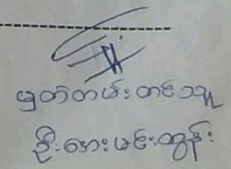 မှတ်တမ်းတင်သူ
ဦးအေးမင်းထွန်း